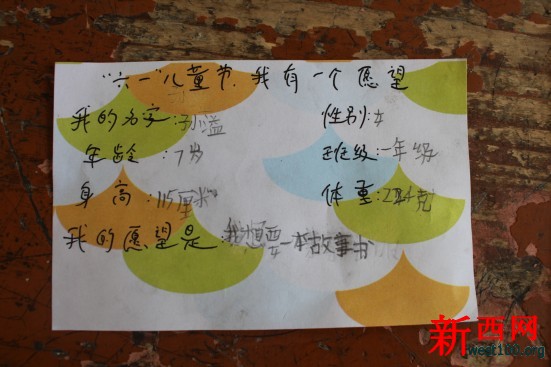 "六一"儿童节,我有一个愿望
我的名字:孙溢 性别:女
年龄:7岁 班级:一年级
身高:115厘米 体重:
我的愿望是:我想要一本故事书
新西网